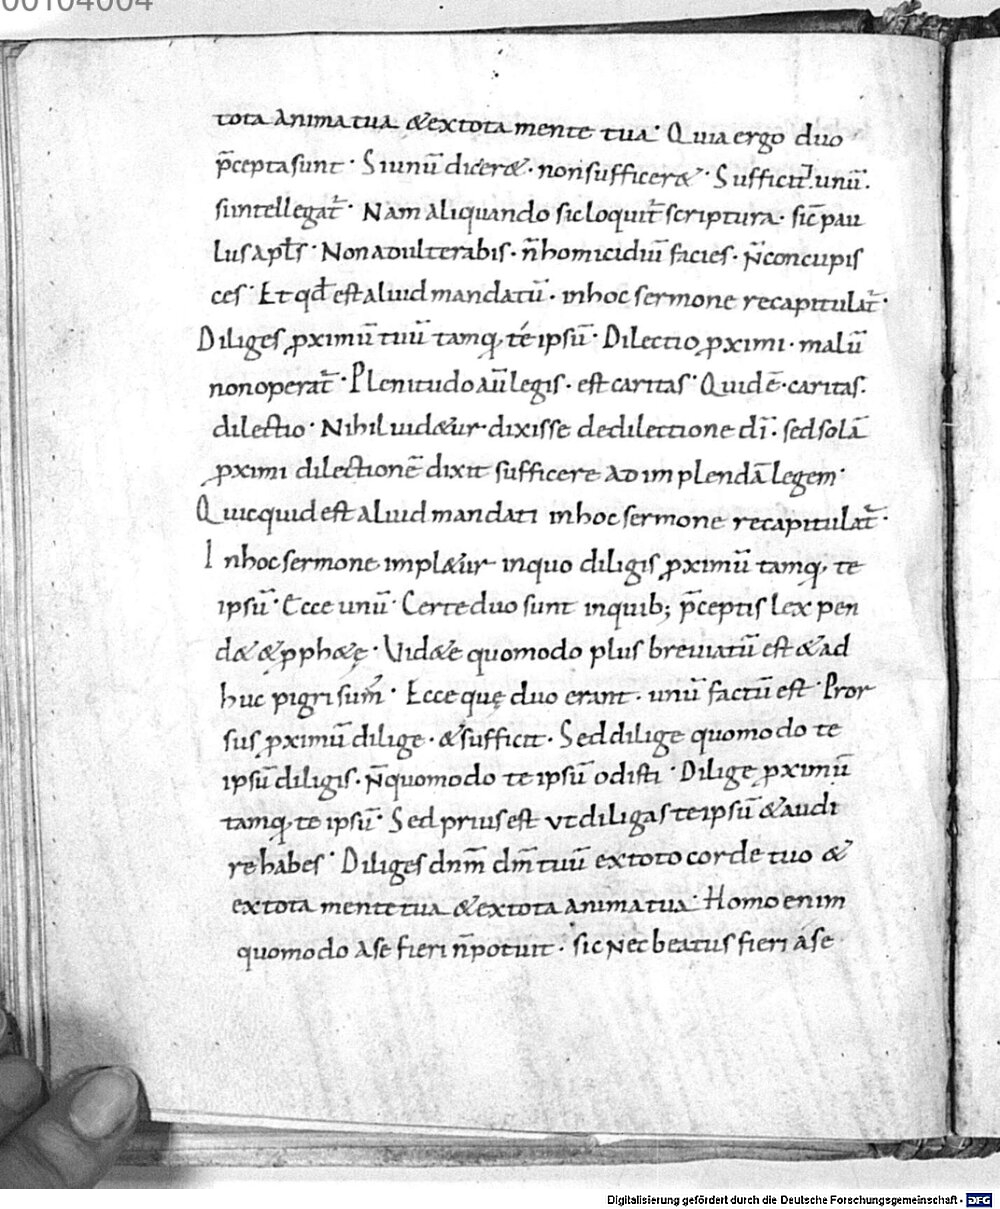 00104004
tota anima tua & ex tota mente tua· Quia ergo duo
p̄cepta sunt· Si unū dicer&· non sufficer&· Sufficit ⁊ unū·
si intellegat᷑· Nam aliquando sic loquit᷑ scriptura· sic̄ pau
lus apl̄s· Non adulterabis· n̄ homicidiū facies· N̄ concupis
ces· Et qd̄ est aliud mandatū· in hoc sermone recapitulat᷑·
Diliges ꝓximū tuū tamq̄ te ipsū· Dilectio ꝓximi· malū
non operat᷑· Plenitudo aū legis· est caritas· Quid ē· caritas·
dilectio· Nihil uid&ur· dixisse de dilectione dī· sed solā
ꝓximi dilectionē dixit sufficere ad implendā legem·
Quicquid est aliud mandati in hoc sermone recapitulat᷑·
In hoc sermone impl&ur in quo diligis ꝓximū tamq̄ te
ipsū· Ecce unū· Certe duo sunt in quib; p̄ceptis lex pen
d& & ꝓph&ę· Uid&e quomodo plus breuiatū est & ad
huc pigri sum᷑· Ecce quę duo erant· unū factū est· Pror
sus ꝓximū dilige· & sufficit· Sed dilige quomodo te
ipsū diligis· N̄ quomodo te ipsū odisti· Dilige ꝓximū
tamq̄ te ipsū· Sed prius est ut diligas te ipsū & audi
re habes· Diliges dnm̄ dm̄ tuū ex toto corde tuo &
ex tota mente tua & ex tota anima tua· Homo enim
quomodo a se fieri n̄ potuit· sic nec beatus fieri a se
Digitalisierung gefördert durch die Deutsche Forschungsgemeinschaft - DFG